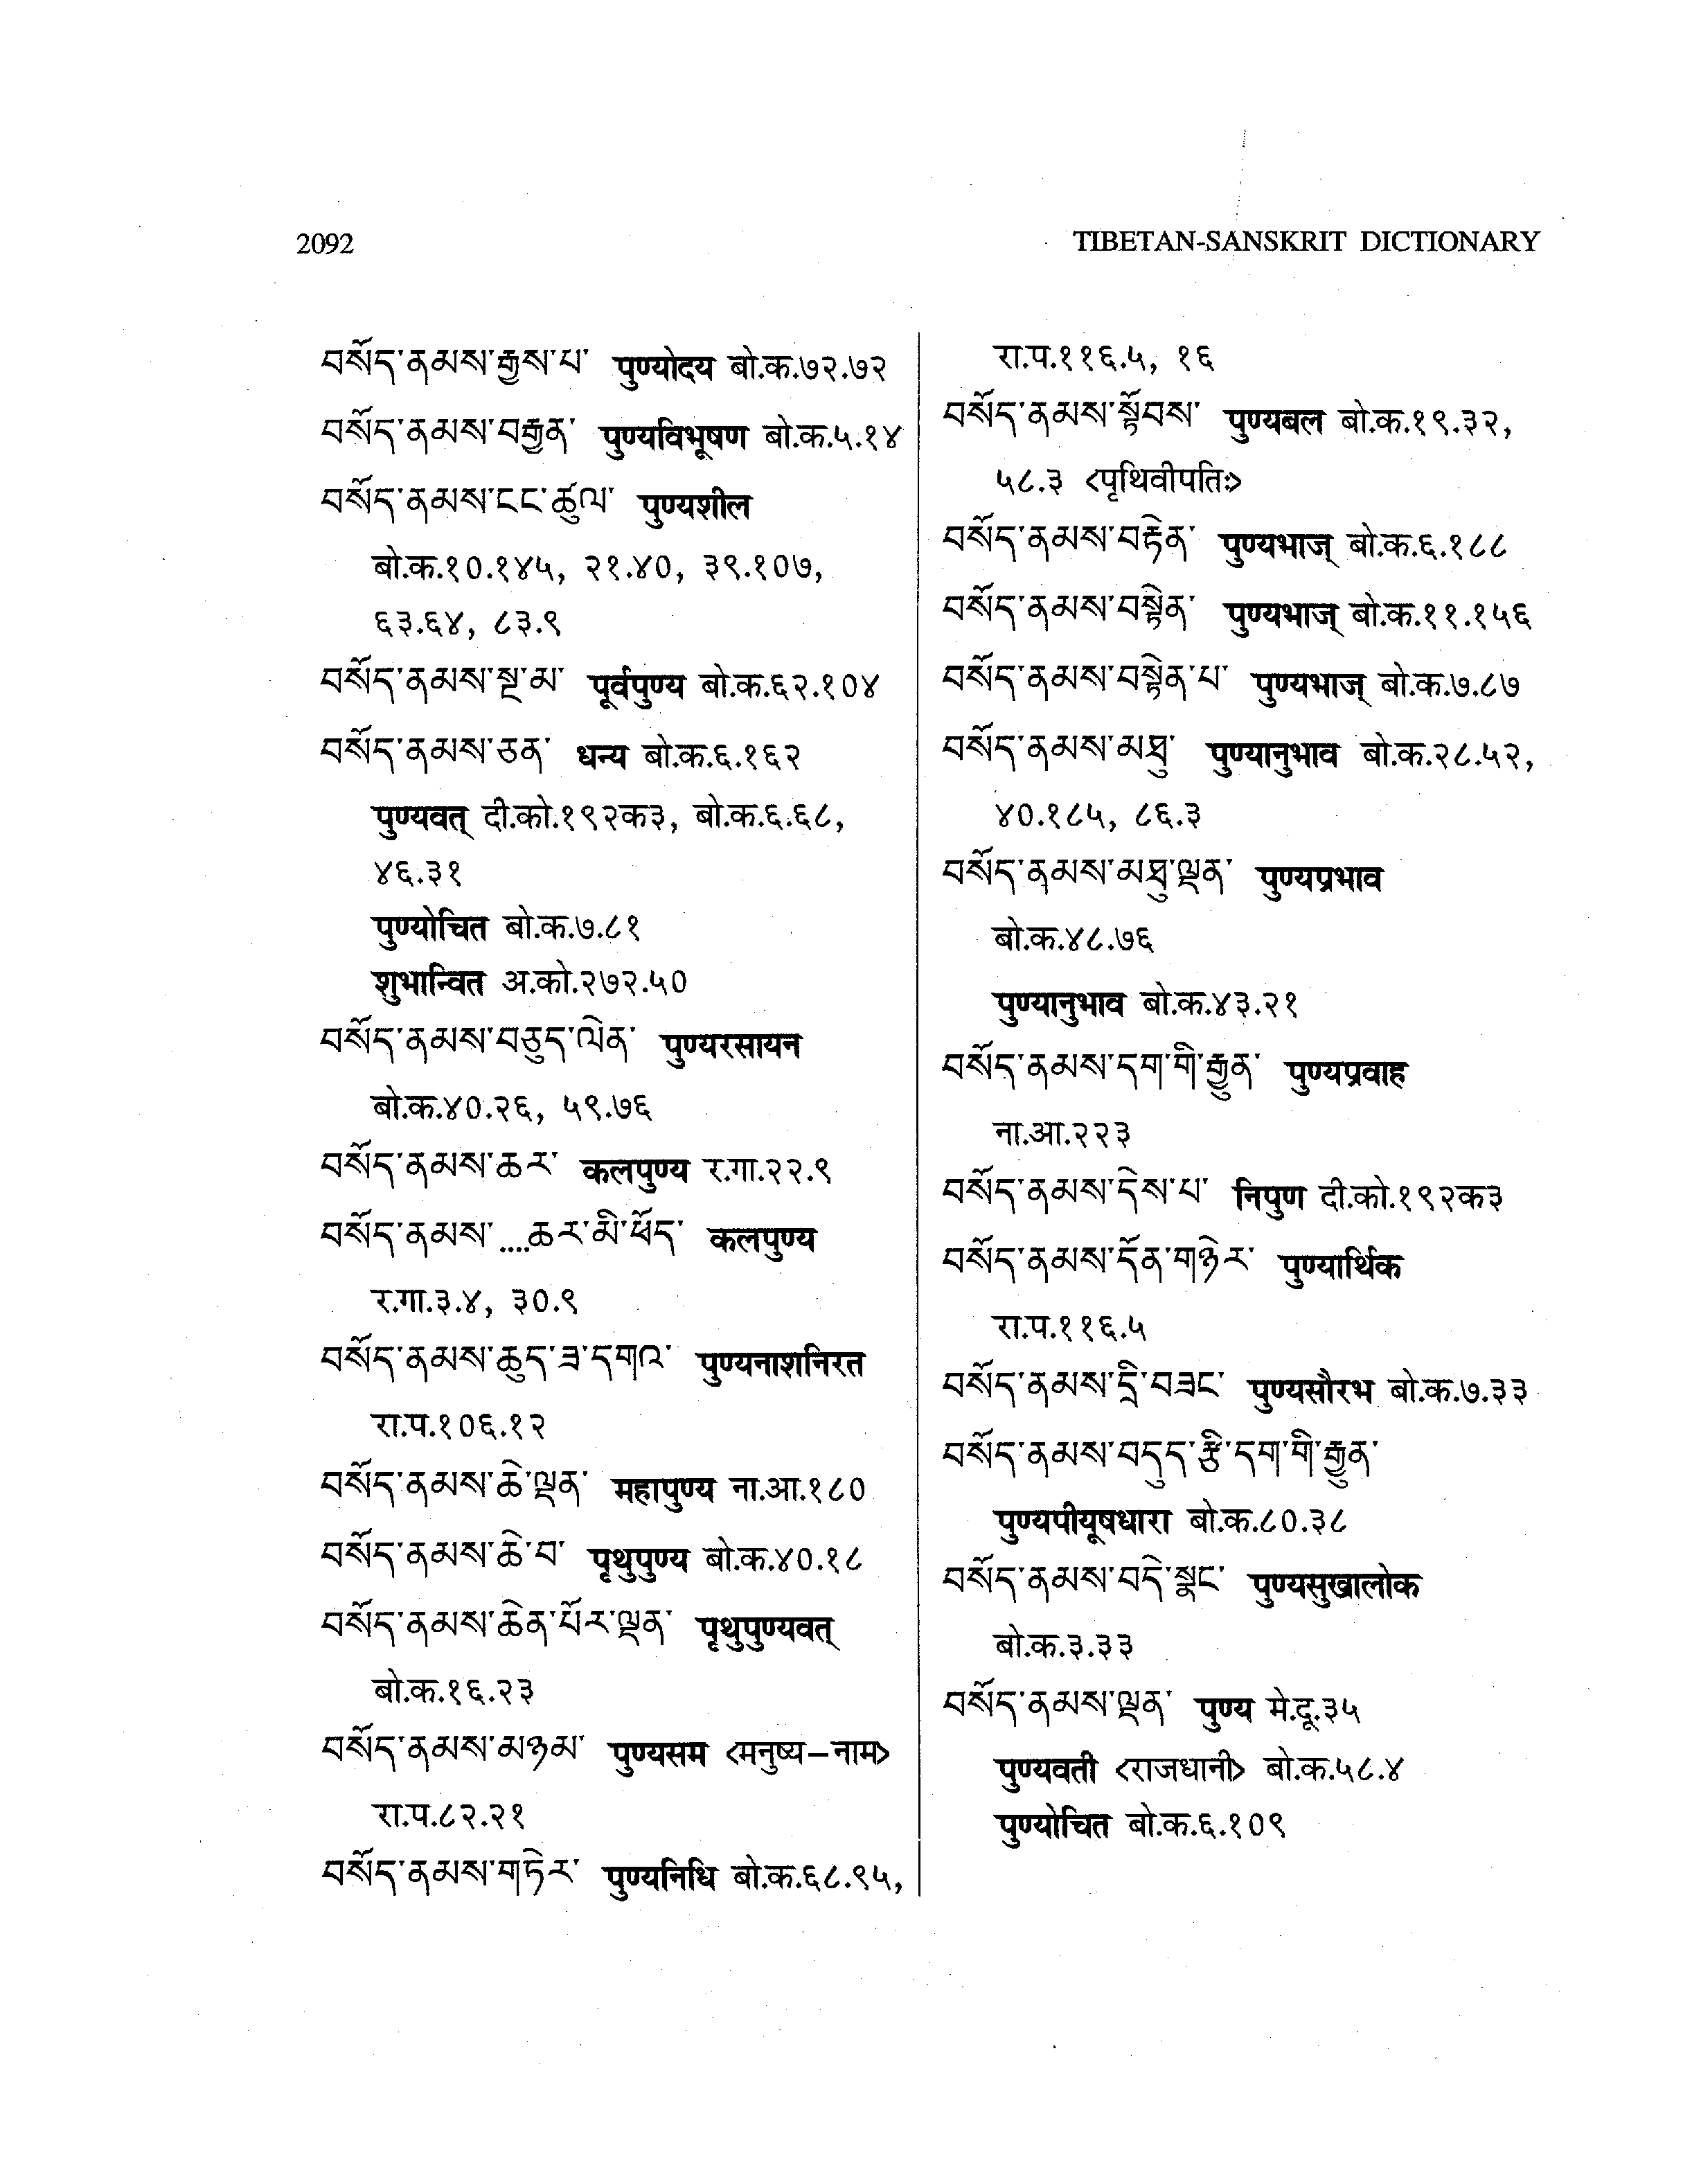 2092
TIBETAN-SANSKRIT DICTIONARY
བསོད་ནམས་རྒྱས་པ་ पुण्योदय बो.क.७२.७२
བསོད་ནམས་བརྒྱན་ पुण्यविभूषण बो.क.५.१४
བསོད་ནམས་ངང་ཚུལ་ पुण्यशील
बो.क.१०.१४५, २१.४०, ३९.१०७,
६३.६४, ८३.९
བསོད་ནམས་སྔ་མ་ पूर्वपुण्य बो.क.६२.१०४
བསོད་ནམས་ཅན་ धन्य बो.क.६.१६२
पुण्यवत् दी.को.१९२क३, बो.क.६.६८,
४६.३१
पुण्योचित बो.क.७.८१
शुभान्वित अ.को.२७२.५०
བསོད་ནམས་བཅུད་ལེན་ पुण्यरसायन
बो.क.४०.२६, ५९.७६
བསོད་ནམས་ཆར་ कलपुण्य र.गा.२२.९
བསོད་ནམས་....ཆར་མི་ཕོད་ कलपुण्य
र.गा.३.४, ३०.९
བསོད་ནམས་ཆུད་ཟ་དགའ་ पुण्यनाशनिरत
रा.प.१०६.१२
བསོད་ནམས་ཆེ་ལྡན་ महापुण्य ना.आ.१८०
བསོད་ནམས་ཆེ་བ་ पृथुपुण्य बो.क.४०.१८
བསོད་ནམས་ཆེན་པོར་ལྡན་ पृथुपुण्यवत्
बो.क.१६.२३
བསོད་ནམས་མཉམ་ पुण्यसम <मनुष्य–नाम>
रा.प.८२.२१
བསོད་ནམས་གཏེར་ पुण्यनिधि बो.क.६८.९५,
रा.प.११६.५, १६
བསོད་ནམས་སྟོབས་ पुण्यबल बो.क.१९.३२,
५८.३ <पृथिवीपतिः>
བསོད་ནམས་བརྟེན་ पुण्यभाज् बो.क.६.१८८
བསོད་ནམས་བསྟེན་ पुण्यभाज् बो.क.११.१५६
བསོད་ནམས་བསྟེན་པ་ पुण्यभाज् बो.क.७.८७
བསོད་ནམས་མཐུ་ पुण्यानुभाव बो.क.२८.५२,
४०.१८५, ८६.३
བསོད་ནམས་མཐུ་ལྡན་ पुण्यप्रभाव
बो.क.४८.७६
पुण्यानुभाव बो.क.४३.२१
བསོད་ནམས་དག་གི་རྒྱུན་ पुण्यप्रवाह
ना.आ.२२३
བསོད་ནམས་དེས་པ་ निपुण दी.को.१९२क३
བསོད་ནམས་དོན་གཉེར་ पुण्यार्थिक
रा.प.११६.५
བསོད་ནམས་དྲི་བཟང་ पुण्यसौरभ बो.क.७.३३
བསོད་ནམས་བདུད་རྩི་དག་གི་རྒྱུན་
पुण्यपीयूषधारा बो.क.८०.३८
བསོད་ནམས་བདེ་སྣང་ पुण्यसुखालोक
बो.क.३.३३
བསོད་ནམས་ལྡན་ पुण्य मे.दू.३५
पुण्यवती <राजधानी> बो.क.५८.४
पुण्योचित बो.क.६.१०९